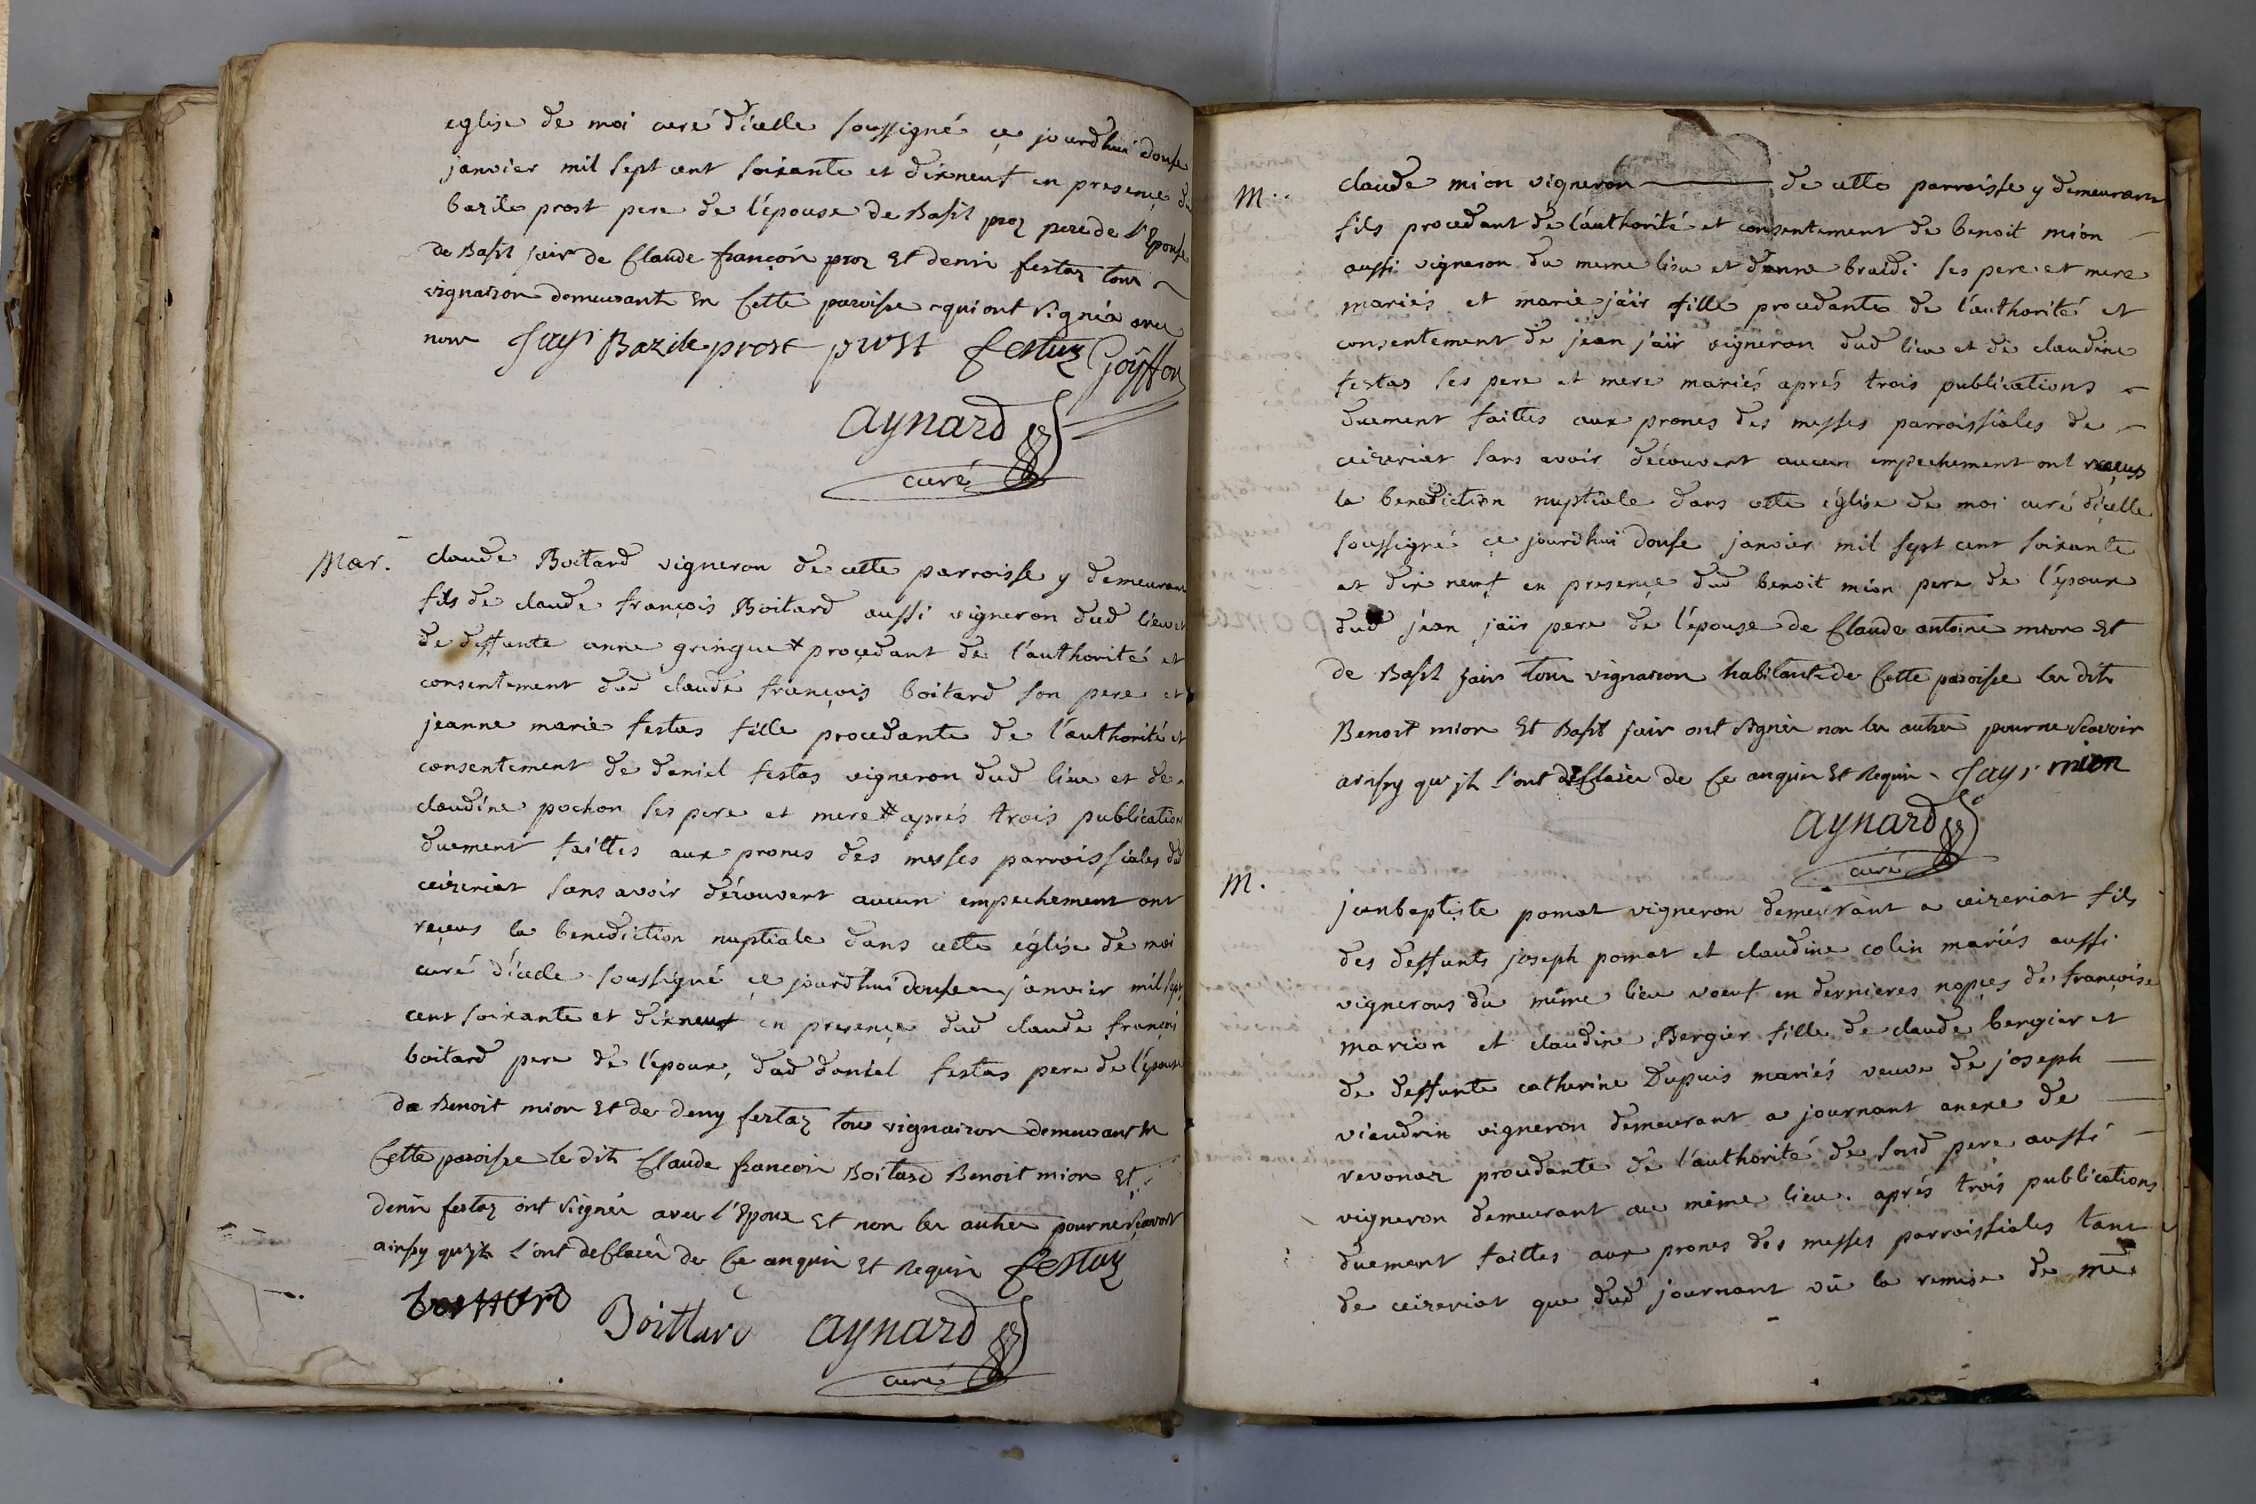 eglise de moi curé d'icelle soussigné ce jourdhui douse
janvier mil sept cent soixante et dixneuf en presençe de
bazile prost pere de l'épouse de Basil proz pere de l'Epouse
de Basil jair de Claude françois proz Et denis festaz tous
vignairon demeurant En Cette paroisse qui ont Signés avec
nous Jayr Bazile prost prost festaz Goÿffon
aynard
curé
Mar. claude Boitard vigneron de cette parroisse y demeurant
fils de claude françois Boitard aussi vigneron dud lieu et
de deffunte anne gringuet proçedant de l'authorité et
consentement dud claude françois boitard son pere et
jeanne marie festas fille procedante de l'authorité et
consentement de daniel festas vigneron dud lieu et de
claudine pochon ses pere et mere aprés trois publications
duement faittes aux prones des messes parroissiales de
ceizeriat sans avoir découvert aucun empechement ont
reçeus la benediction nuptiale dans cette église de moi
curé d'icelle soussigné çe jourdhui douse janvier mil sept
cent soixante et dixneuf en presençe dud claude françois
boitard pere de l'époux, dud daniel festas pere de l'épouse
de Benoit mion Et de deny festaz tous vignairon demeurant En
Cette paroisse le dits Claude françois Boitard Benoit mion Et
denis festaz ont Signés avec l'Epoux Et non les autres pour ne Scavoir
ainsy quils l'ont desclarés de Ce enquis Et Requis festaz
boittard Boittard aynard
curé
M. claude mion vigneron de cette parroisse y demeurant
fils procedant de l'authorité et consentement de benoit mion
aussi vigneron du meme lieu et d'anne braidi ses pere et mere
mariés et marie jaïr fille procedante de l'authorité et
consentement de jean jaïr vigneron dud lieu et de claudine
festas ses pere et mere mariés aprés trois publications
duement faittes aux prones des messes parroissiales de
ceizeriat sans avoir découvert aucun empechement ont reçeus
la benediction nuptiale dans cette église de moi curé d'içelle
soussigné çe jourdhui douse janvier mil sept cent soixante
et dix neuf en presençe dud benoit mion pere de l'époux
dud jéan jaïr pere de l'épouse de Claude antoine mion Et
de Basil jair tous vignairon habitants de Cette paroisse les dits
Benoit mion Et Basil jair ont Signés non les autres pour ne Scavoir
ainsy qu'ils l'ont desclarés de Ce enquis Et Requis Jayr mion
aynard
curé
M. jeanbaptiste pomat vigneron demeurant a ceizeriat fils
des deffunts joseph pomat et claudine colin mariés aussi
vignerons du même lieu voeuf en dernieres nopçes de françoise
marion et claudine Bergier fille de claude bergier et
de deffunte catherine Dupuis mariés veuve de joseph
viaudrin vigneron demeurant a journant anexe de
revonas procedante de l'authorité de sond pere aussi
vigneron demeurant au même lieu. aprés trois publications
duement faittes aux prones des messes parroissiales tant
de ceizeriat que dud journant vû la remise de me